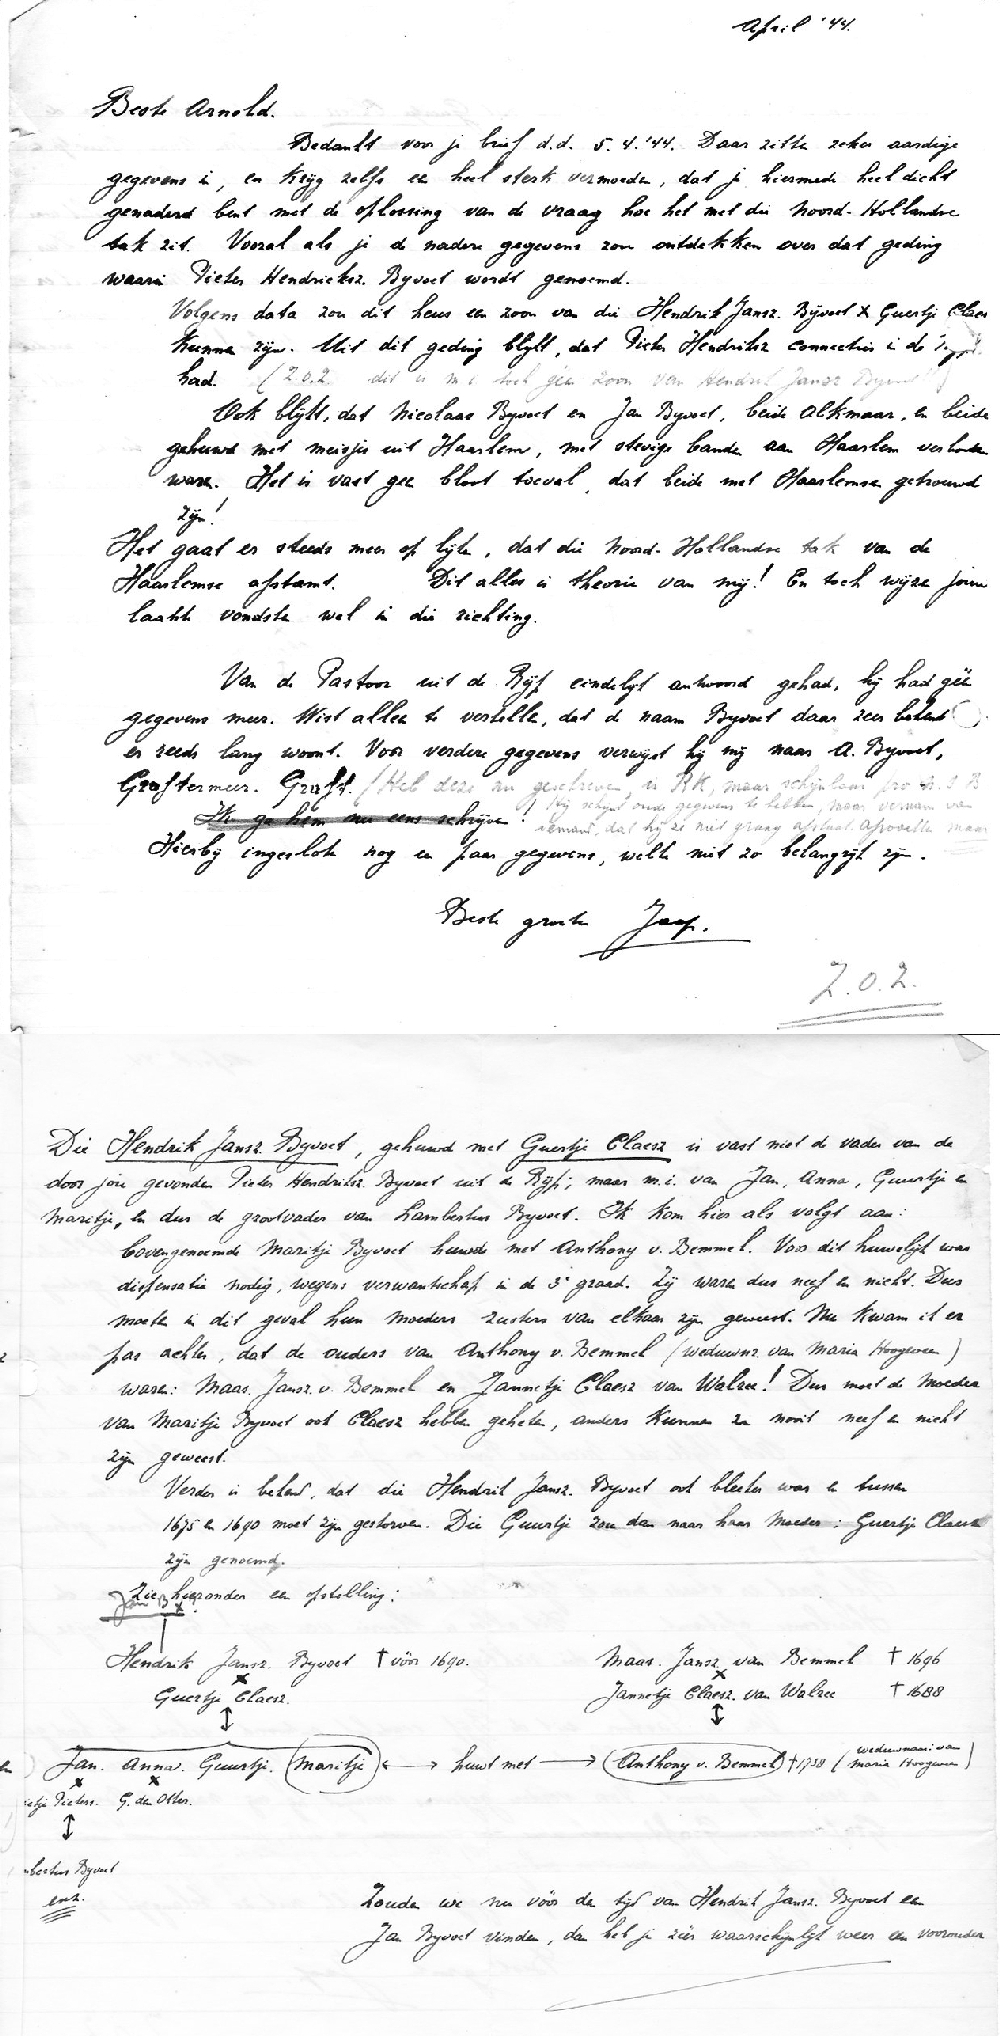 April '44.
Beste Arnold.
Bedankt voor je brief d.d. 5.4.'44. Daar zitten zeker aardige
gegevens in, en krijg zelfs een heel sterk vermoeden, dat je hiermede heel dicht
genaderd bent met de oplossing van de vraag hoe het met die Noord-Hollandse
tak zit. Vooral als je de nadere gegevens zou ontdekken over dat geding
waarin Pieter Hendricksz. Byvoet wordt genoemd.
Volgens data zou dit heus een zoon van die Hendrik Jansz. Byvoet x Guertje Claes
kunnen zijn. Uit dit geding blijkt, dat Pieter Hendriksz connecties in de
had. (Z.o.z. dit is m.i. toch geen zoon van Hendrik Jansz Byvoet)
Ook blijkt, dat Nicolaas Byvoet en Jan Byvoet, beide Alkmaar, en beide
gehuwd met meisjes uit Haarlem, met stevige banden aan Haarlem verbonden
waren. Het is vast geen bloot toeval, dat beide met Haarlemse getrouwd
zijn!
Het gaat er steeds meer op lijken, dat die Noord-Hollandse tak van de
Haarlemse afstamt. Dit alles is theorie van mij! En toch wijzen jouw
laatste vondsten wel in die richting.
Van de Pastoor uit de Rijp eindelijk antwoord gehad, hij had géén
gegevens meer. Wist alleen te vertellen, dat de naam Byvoet daar zeer bekend
er reeds lang woont. Voor verdere gegevens verwijst hij mij naar A. Byvoet,
Graftermeer. Graft. (Heb deze nu geschreven, is RK, maar schijnbaar pro N.S.B
Ik ga hem nu eens schrijven! Hij schijnt oude gegevens te hebben, maar vernam van
iemand, dat hij ze niet graag afstaat. Afwachten maar
Hierbij ingesloten nog een paar gegevens, welke niet zo belangrijk zijn.
Beste groeten Jaap.
Z.o.z.
Die Hendrik Jansz. Byvoet, gehuwd met Guertje Claesz is vast niet de vader van de
door jou gevonden Pieter Hendriksz Byvoet uit de Rijp, maar m.i. van Jan, Anna, Guurtje en
Maritje, en dus de grootvader van Lambertus Byvoet. Ik kom hier als volgt aan:
bovengenoemde Maritje Byvoet huwde met Anthony v. Bemmel. Voor dit huwelijk was
dispensatie nodig, wegens verwantschap in de 3e graad. Zij waren dus neef en nicht. Dus
moeten in dit geval hun moeders zusters van elkaar zijn geweest. Nu kwam ik er
pas achter, dat de ouders van Anthony v. Bemmel (weduwnr. van Maria Hoogeveen)
waren: Maas. Jansz. v. Bemmel en Jannetje Claesz van Walree! Dus moet de moeder
van Maritje Byvoet ook Claesz hebben geheten, anders kunnen ze nooit neef en nicht
zijn geweest.
Verder is bekend, dat die Hendrik Jansz. Byvoet ook bleeker was en tussen
1675 en 1690 moet zijn gestorven. Die Guurtje zou dan naar haar moeder: Guertje Claesz
zijn genoemd.
Zie hieronder een opstelling:
Jan B
Hendrik Jansz. Byvoet † vóór 1690. Maas. Jansz. van Bemmel † 1696
x x
Guertje Claesz. Jannetje Claesz. van Walree † 1688
Jan. Anna. Guurtje. (Maritje) ← → huwt met → (Anthony v. Bemmel) † 1738 (weduwnaar van Maria Hoogeveen)
x x
Pieters. G. den Otter.
Byvoet
enz.
Zouden we nu vóór de tijd van Hendrik Jansz. Byvoet een
Jan Byvoet vinden, dan heb je zéér waarschijnlijk weer een voorouder